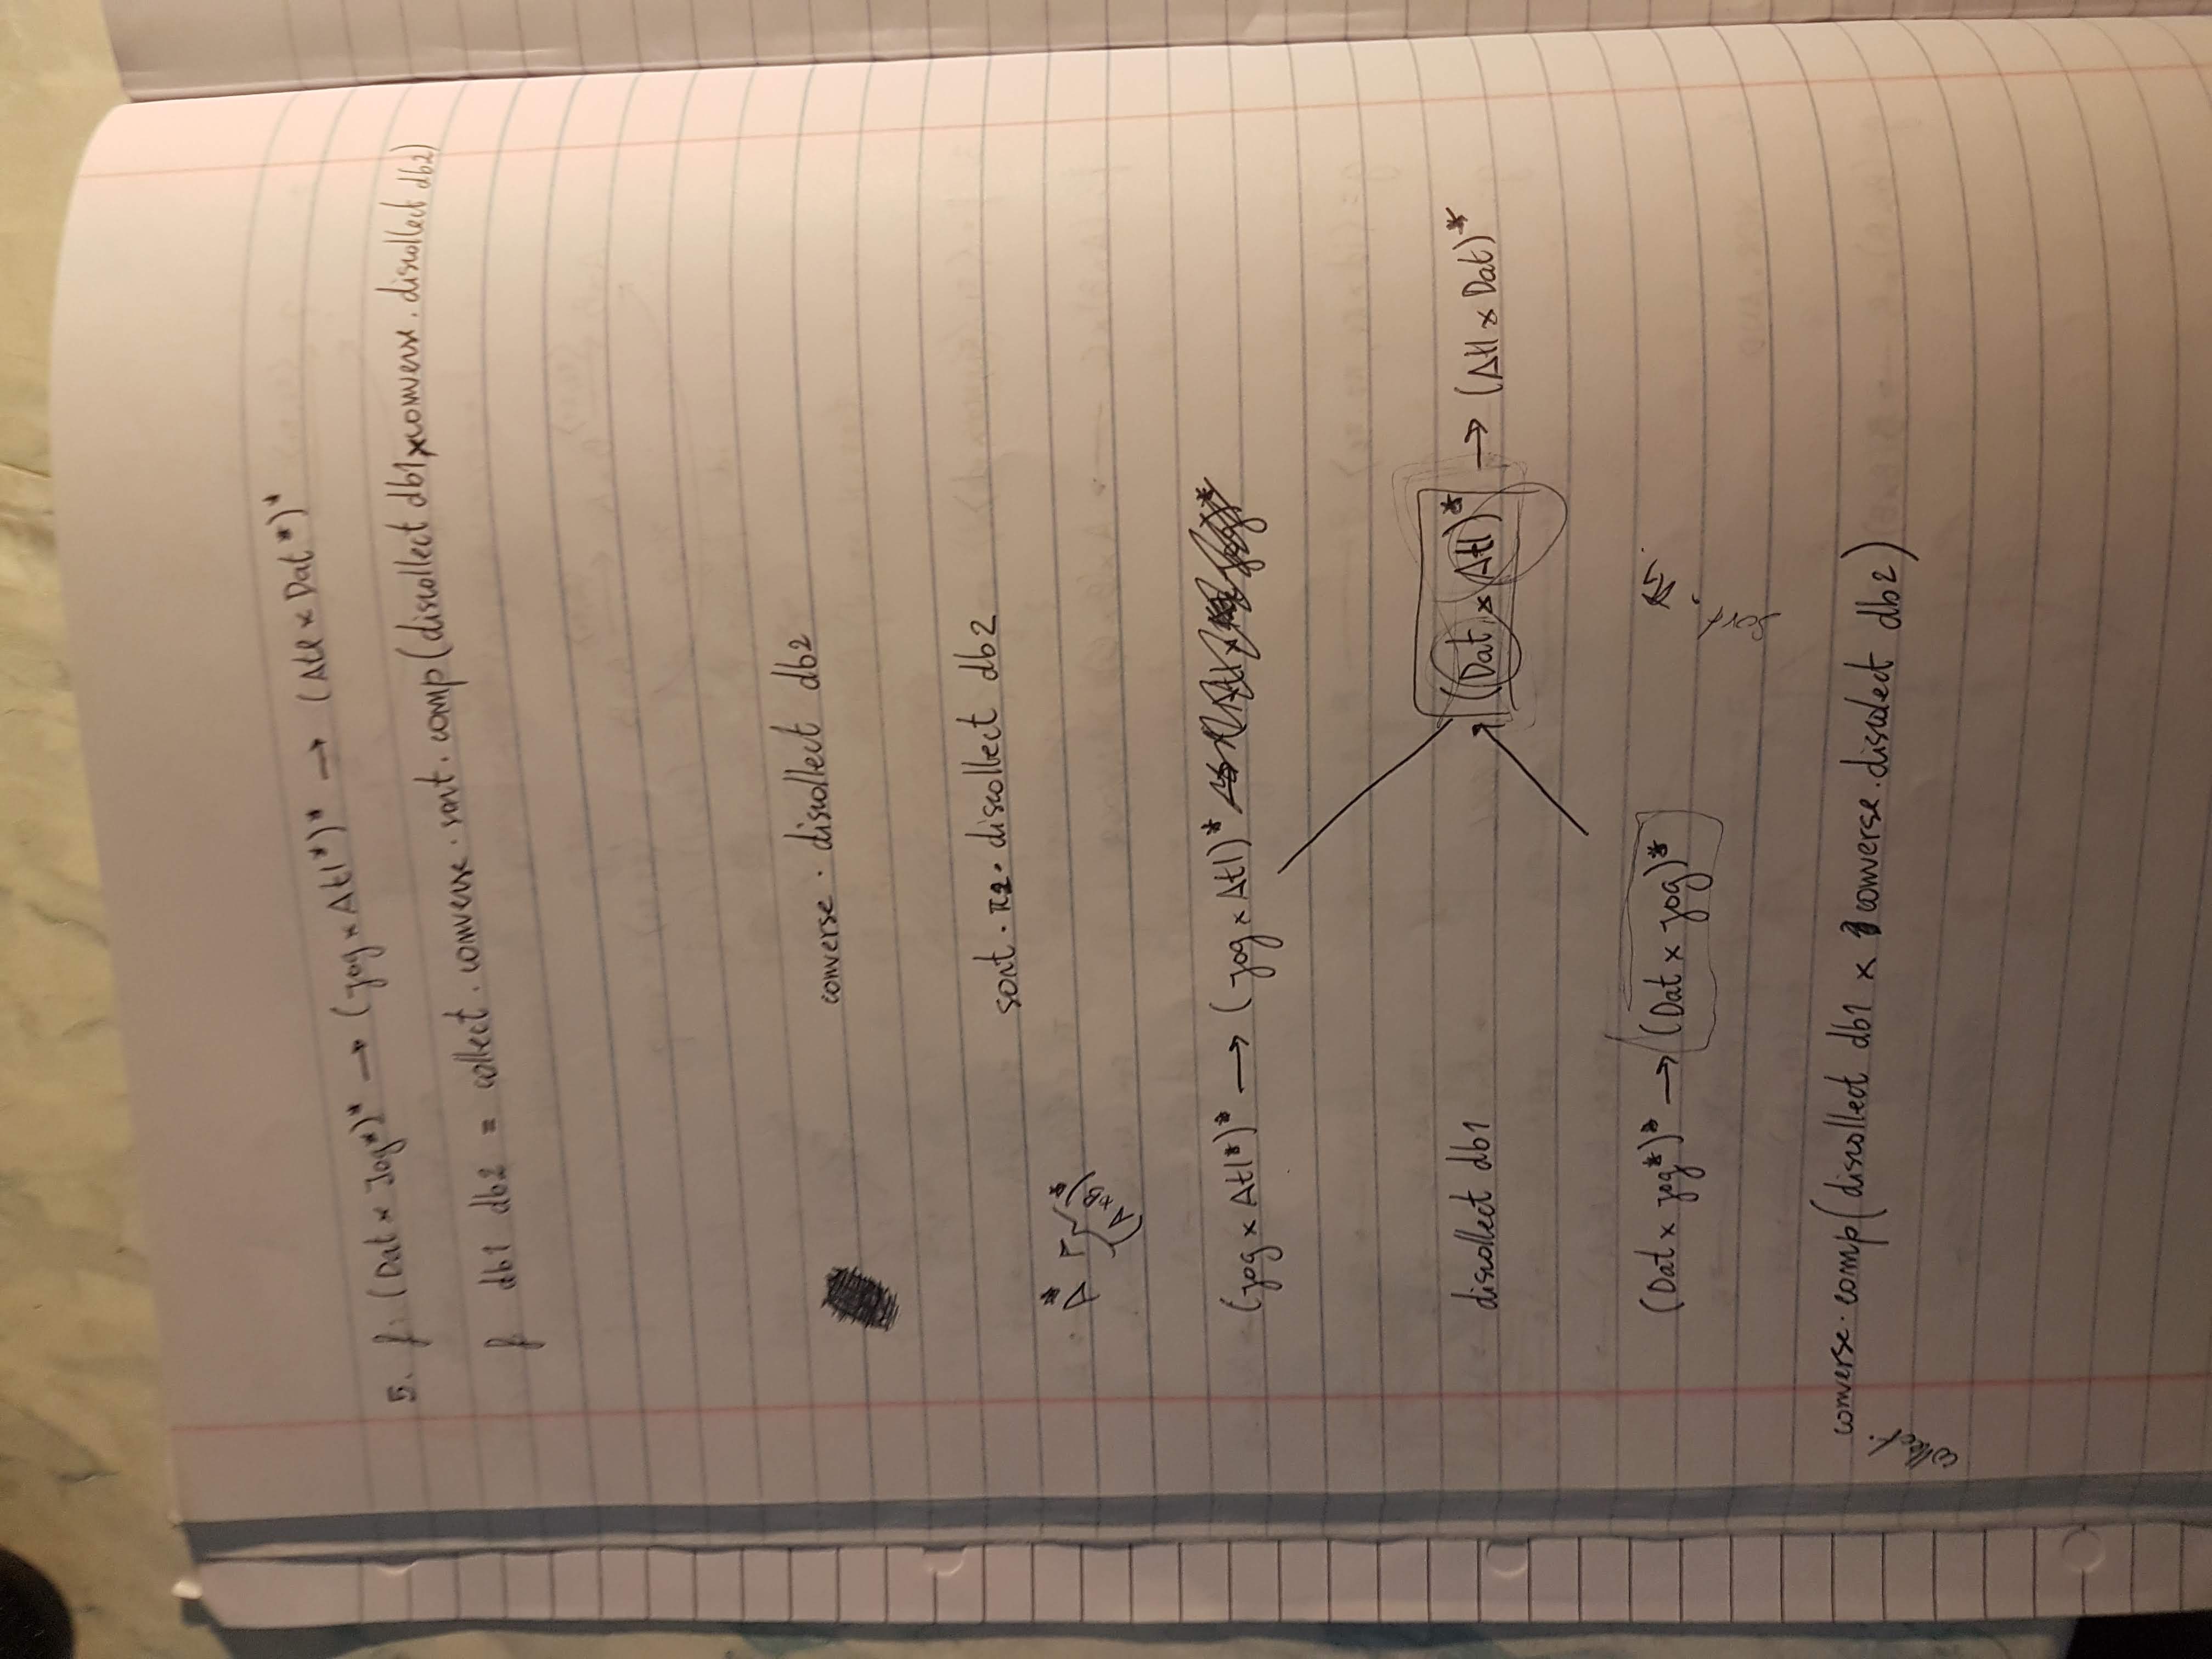 5. f: (Dat × Jog*)* → (Jog × Atl*)* → (Atl × Dat*)*
f db1 db2 = collect . converse . sort . comp (discollect db1 × converse . discollect db2)
converse . discollect db2
sort . π2 . discollect db2
A*
(A×B)*
(Jog × Atl*)* → (Jog × Atl)*
discollect db1
(Dat × Atl)* → (Atl × Dat)*
(Dat × Jog*)* → (Dat × Jog)*
sort . π1 .
converse . comp (discollect db1 × converse . discolect db2)
collect .